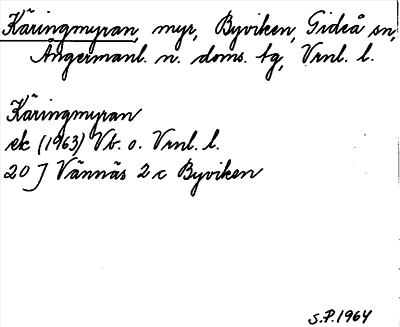 Käringmyran, myr, Byviken, Gideå sn,
Ångermanl. n. doms. tg, Vrnl. l.
Käringmyran
ek (1963) Vb. o. Vrnl. l.
20 J Vännäs 2 c Byviken
S.P. 1964